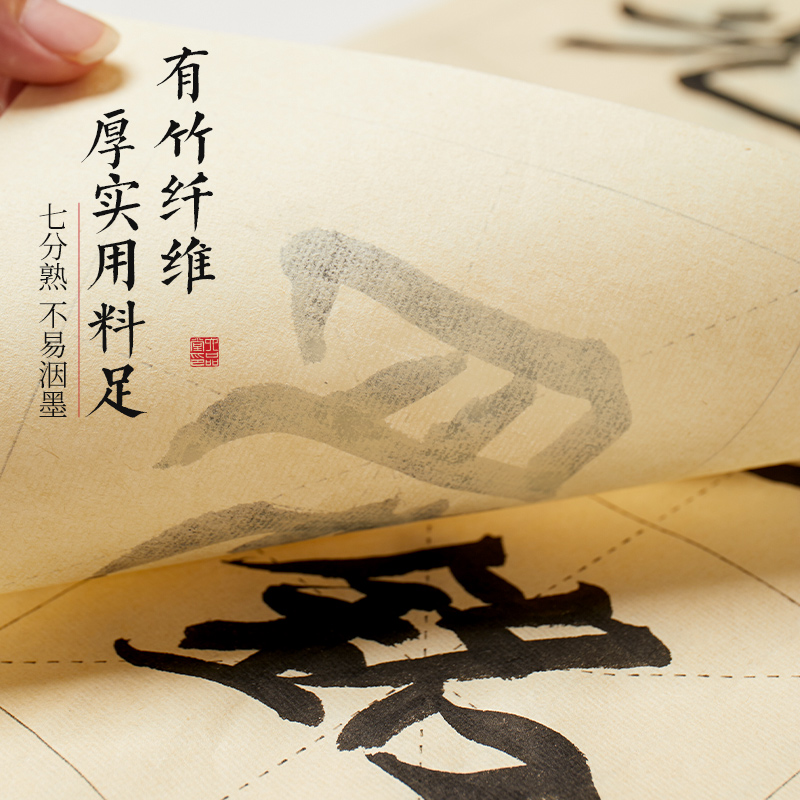 有竹纤维
厚实用料足
七分熟 不易洇墨
六品
堂印